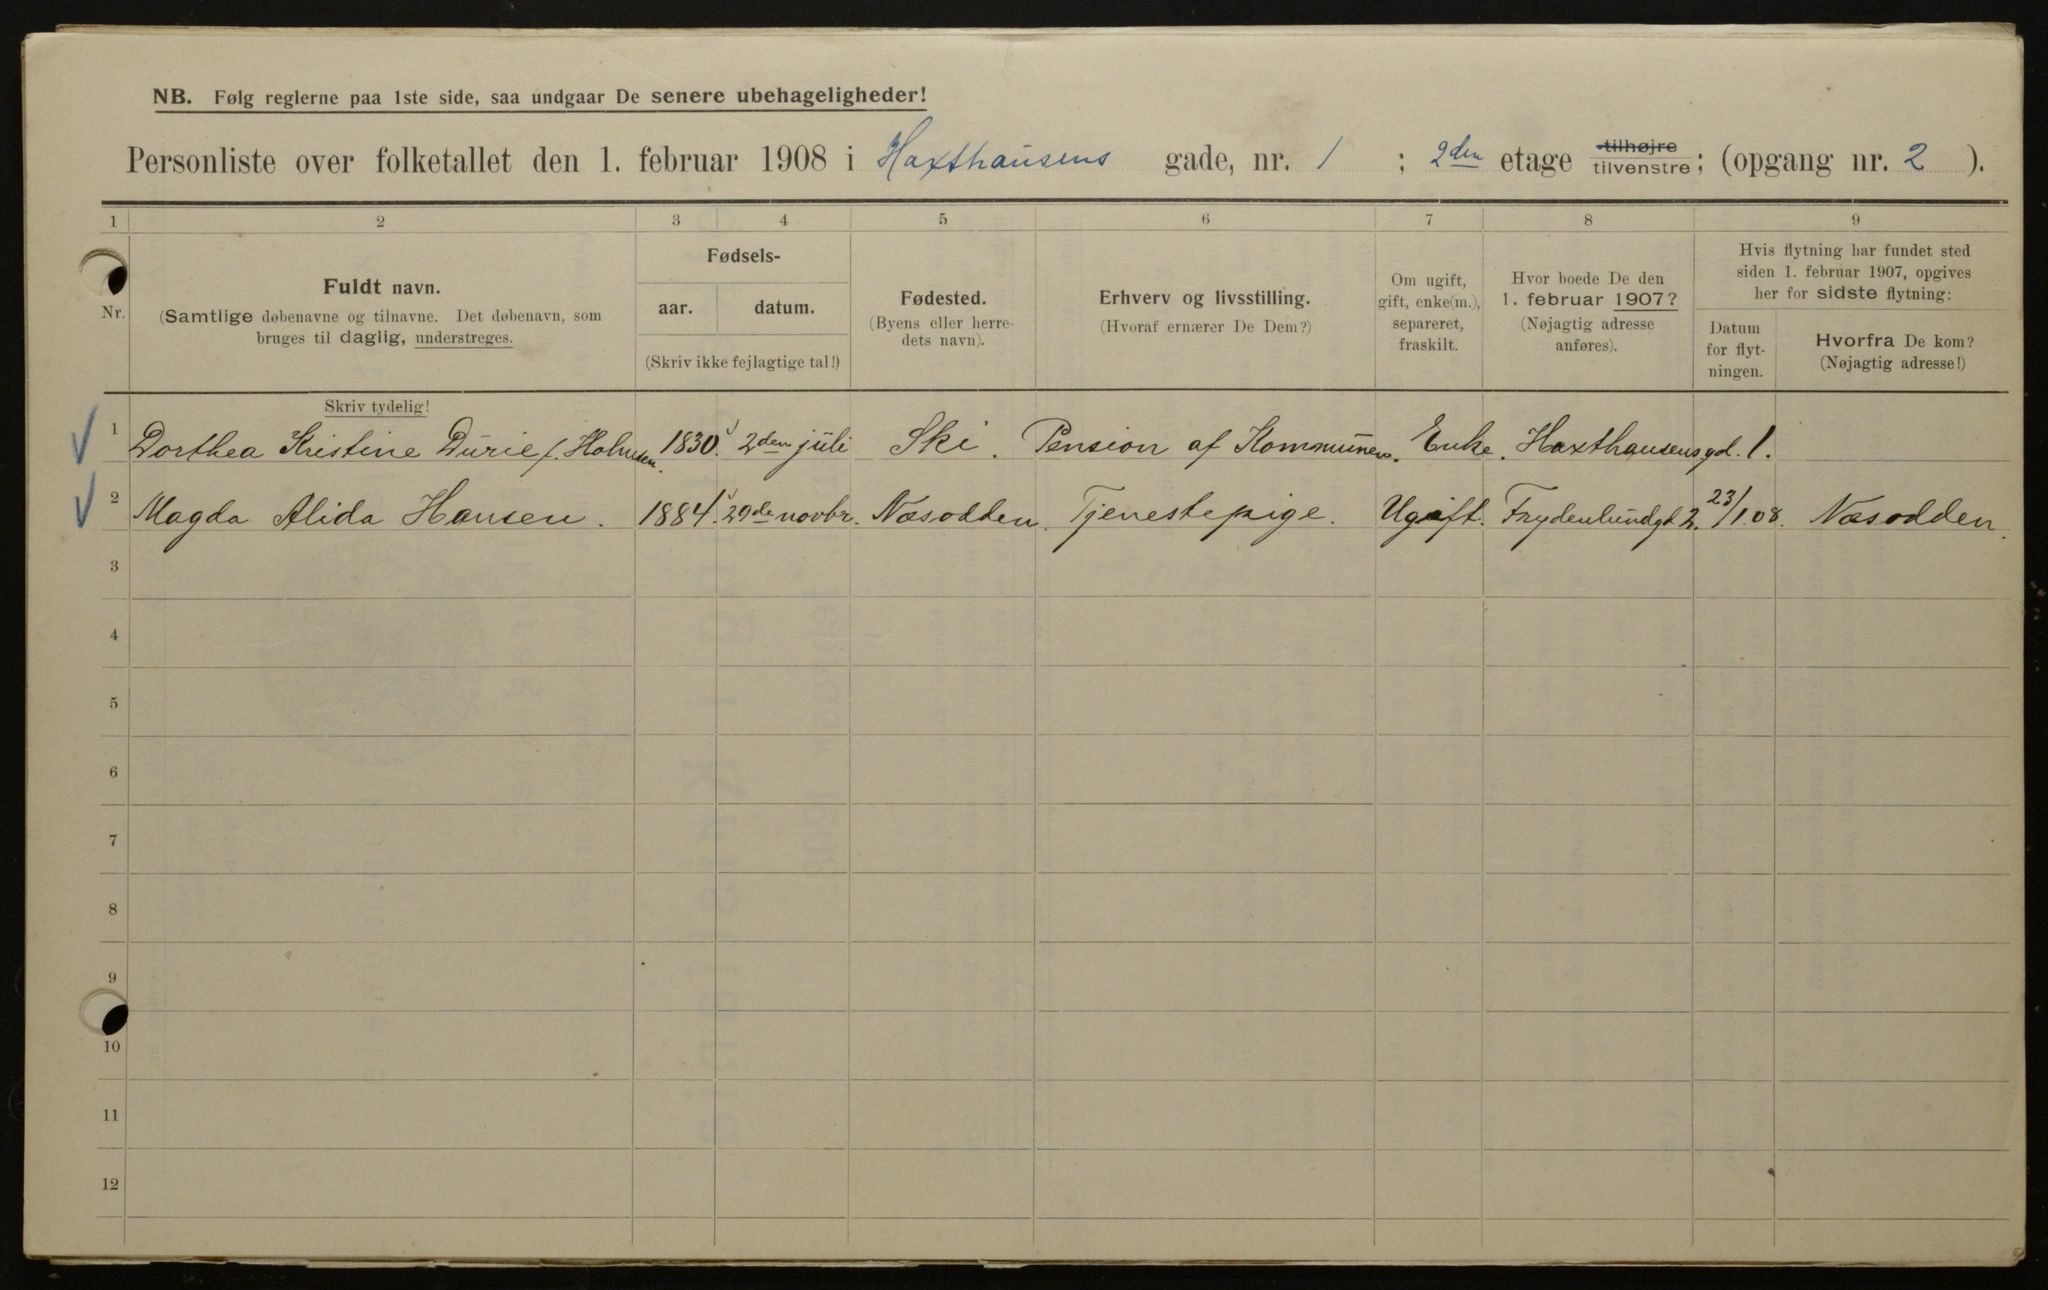 NB. Følg reglerne paa 1ste side, saa undgaar De senere ubehageligheder!
Personliste over folketallet den 1. februar 1908 i Haxthausens gade, nr. 1 ; 2den etage tilhøjre tilvenstre; (opgang nr. 2 ).
1 2 3 4 5 6 7 8 9
Nr.
Fuldt navn.
(Samtlige døbenavne og tilnavne. Det døbenavn, som
bruges til daglig, understreges.
Fødsels-
aar. datum.
(Skriv ikke fejlagtige tal!)
Fødested.
(Byens eller herre-
dets navn).
Erhverv og livsstilling.
(Hvoraf ernærer De Dem?)
Om ugift,
gift, enke(m.),
separeret,
fraskilt.
Hvor boede De den
1. februar 1907?
(Nøjagtig adresse
anføres).
Hvis flytning har fundet sted
siden 1. februar 1907, opgives
her for sidste flytning:
Datum
for flyt-
ningen.
Hvorfra De kom?
(Nøjagtig adresse!)
Skriv tydelig!
1 Dorthea Kristine Durie f. Holmsen. 1830. 2den juli Ski. Pension af Kommunen. Enke. Haxthausensgd. 1.
2 Magda Alida Hansen. 1884. 29de novbr. Næsodden. Tjenestepige. Ugift. Frydenlundgd 2. 23/1.08. Næsodden.
3
4
5
6
7
8
9
10
11
12